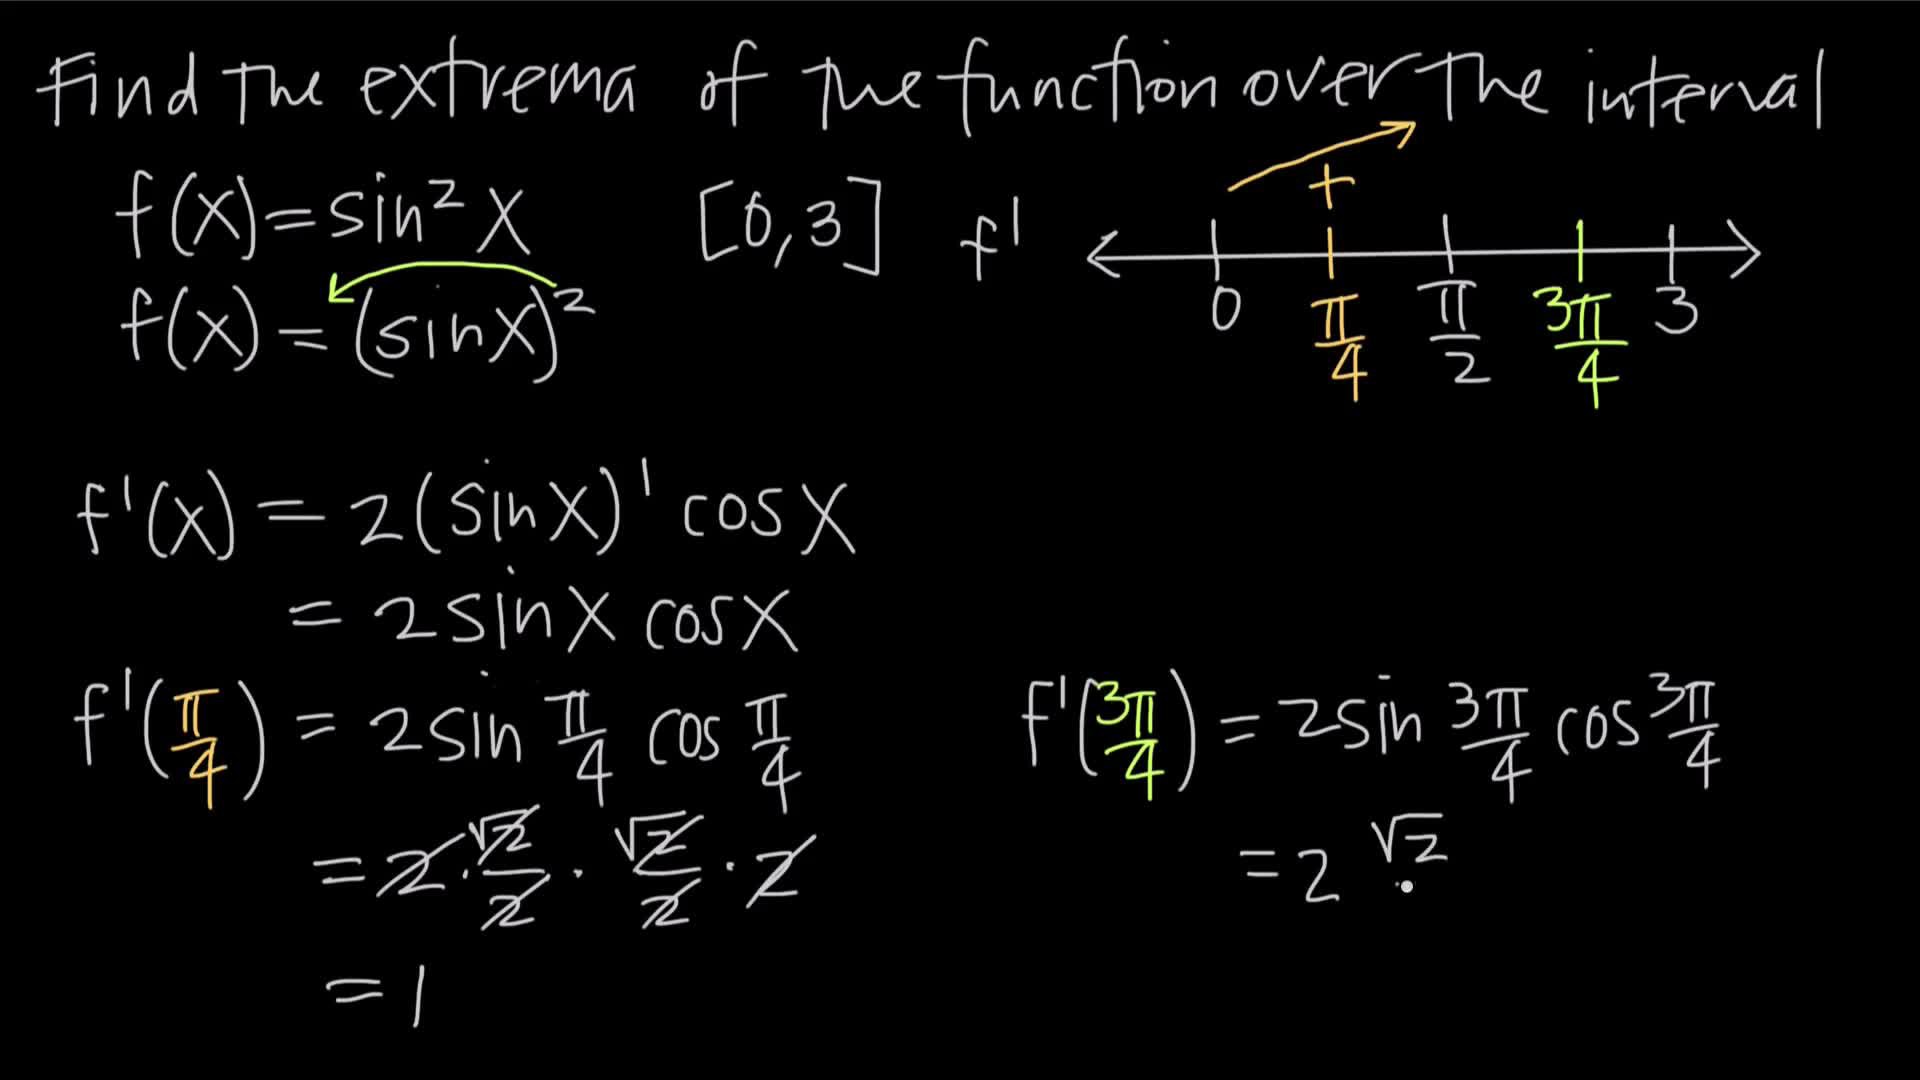 Find the extrema of the function over the interval
f(x) = sin² x [0, 3]
f(x) = (sin x)²
f' + 0 π/4 π/2 3π/4 3
f'(x) = 2(sin x)¹ cos x
= 2 sin x cos x
f'(π/4) = 2 sin π/4 cos π/4
= 2 · √2/2 · √2/2 · 2
= 1
f'(3π/4) = 2 sin 3π/4 cos 3π/4
= 2 √2